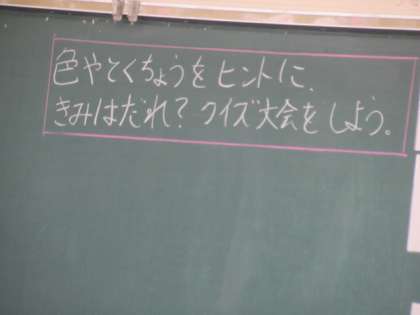 色やとくちょうをヒントに、
きみはだれ？クイズ大会をしよう。